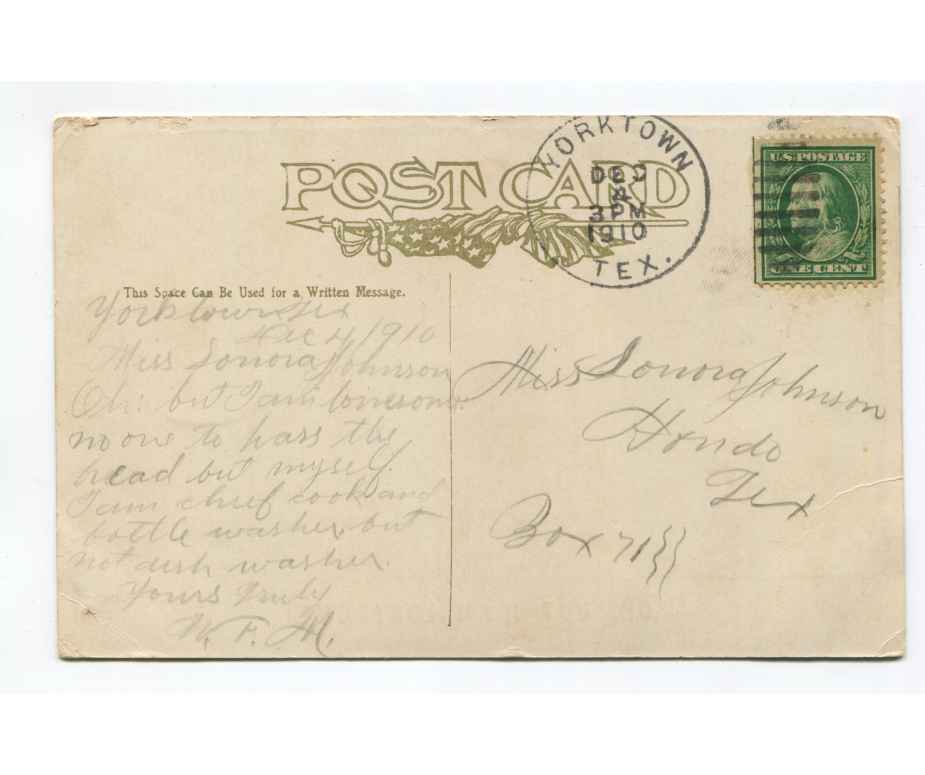 POST CARD
YORKTOWN
DEC
4
3 PM
1910
TEX.
U.S. POSTAGE
ONE CENT
This Space Can Be Used for a Written Message.
Yorktown Tex
Dec 4, 1910
Miss Lonora Johnson
Oh: but I am lonesome.
no one to pass the
head but myself.
I am chief cook and
bottle washer but
not dish washer.
Yours Truly
W. F. M.
Miss Lonora Johnson
Hondo
Tex
Box 71